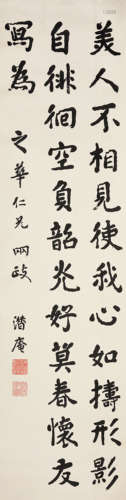 美人不相見使我心如擣形影
自徘徊空負韶光好莫春懷友
寫為
之華仁兄 兩政 潛庵